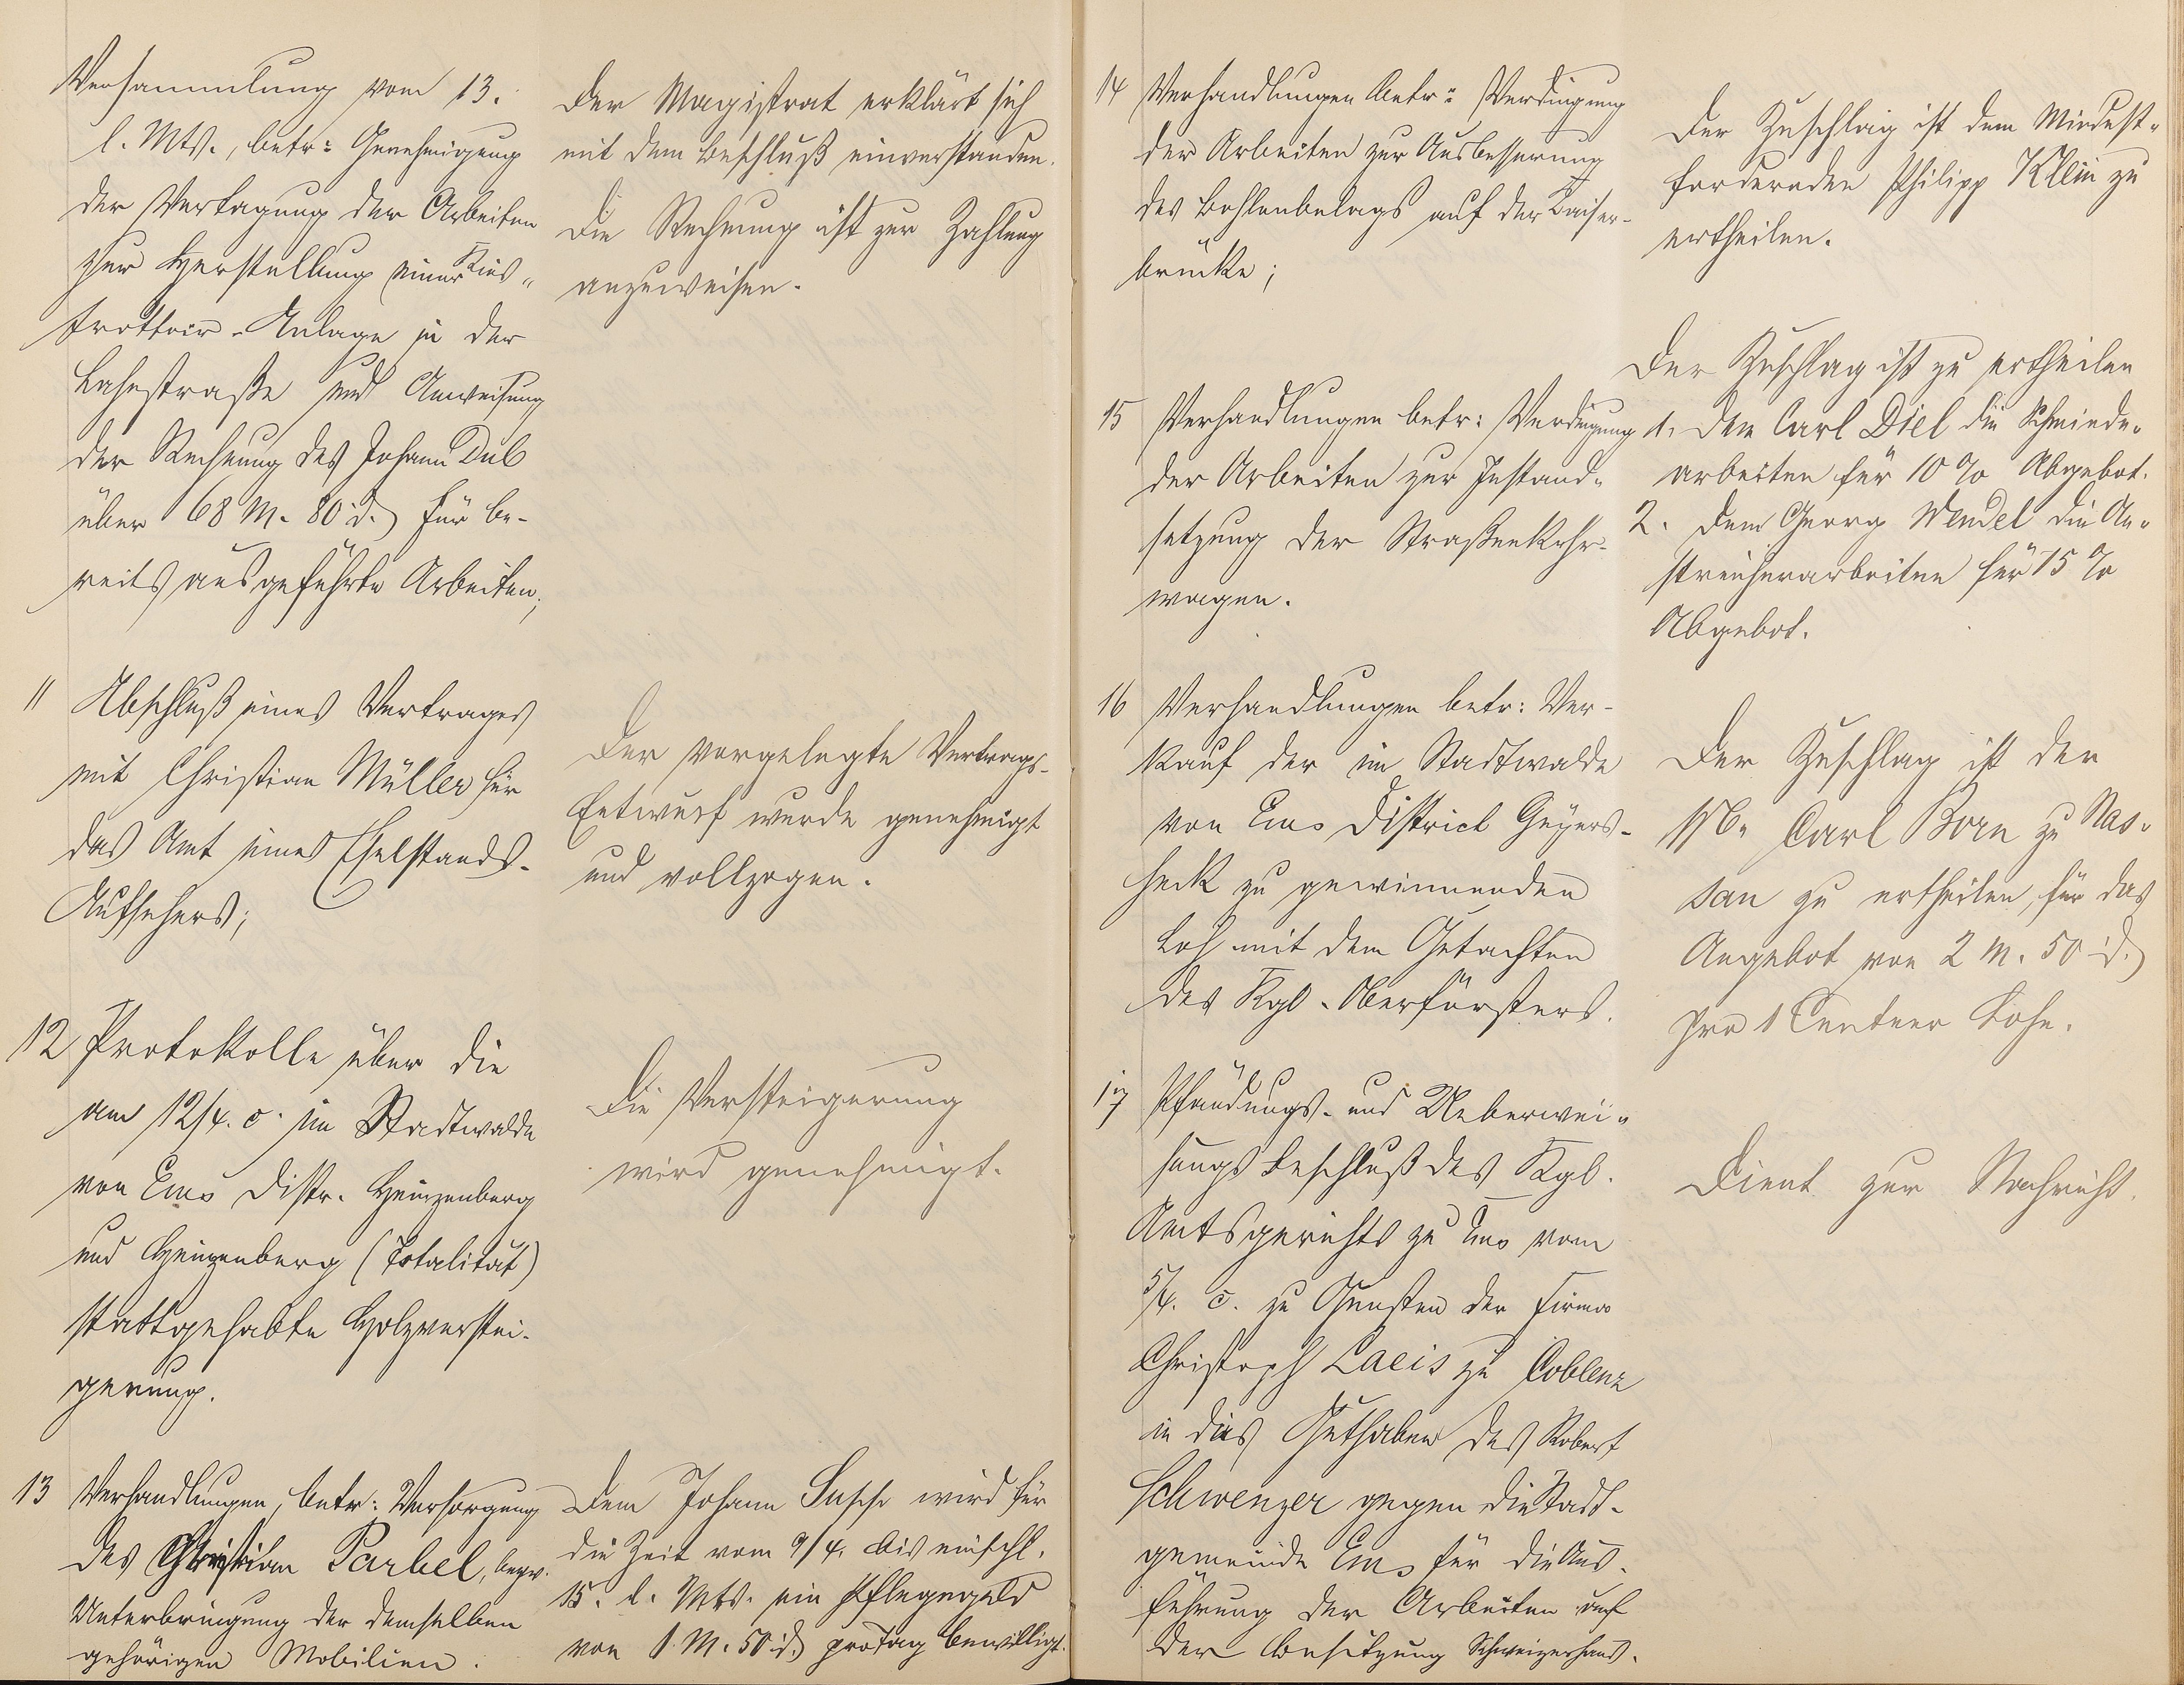 Versammlung vom 13.
l. Mts., betr: Genehmigung
der Vertagung der Arbeiten
zur Herstellung einer Kies-
trottoir-Anlage in der
Lahnstraße und Anweisung
der Rechnung des Johann Dub
über 68 M. 80 d. für be-
reits ausgeführte Arbeiten;
Der Magistrat erklärt sich
mit dem Beschluß einverstanden.
Die Rechnung ist zur Zahlung
anzuweisen.
11 Abschluß eines Vertrages
mit Christian Müller für
das Amt eines Eselstands-
Aufsehers;
Der vorgelegte Vertrags-
Entwurf wurde genehmigt
und vollzogen.
12 Protokolle über die
am 12/4. c. im Stadtwalde
von Ems Distr. Heinzenberg
und Heinzenberg (Totalität)
stattgehabte Holzverstei-
gerung.
Die Versteigerung
wird genehmigt.
13 Verhandlungen, betr: Versorgung
des Christian Parbel, bezw.
Unterbringung der demselben
gehörigen Mobilien.
Dem Johann wird für
die Zeit vom 9/4. bis einschl.
15. l. Mts. ein Pflegegeld
von 1 M. 50 d. pro Tag bewilligt.
14 Verhandlungen betr: Verdingung
der Arbeiten zur Ausbesserung
des Bohlenbelags auf der Kaiser-
brücke;
Der Zuschlag ist dem Mindest-
fordernden Philipp Klein zu
ertheilen.
15 Verhandlungen betr: Verdingung
der Arbeiten zur Instand-
setzung der Straßenkehr-
wagen.
Der Zuschlag ist zu ertheilen
1. dem Carl Diel die Schmiede-
arbeiten für 10 % Abgebot.
2. dem Georg Wendel die An-
streicherarbeiten für 15 %
Abgebot.
16 Verhandlungen betr: Ver-
kauf der im Stadtwalde
von Ems District Geyers-
heck zu gewinnenden
Loh mit dem Gutachten
des Kgl. Oberförsters.
Der Zuschlag ist den
Carl Born zu Nas-
sau zu ertheilen, für das
Angebot von 2 M. 50 d.
pro 1 Centner Lohe.
17 Pfändungs- und Ueberwei-
sungs Beschluß des Kgl.
Amtsgerichts zu Ems vom
5/4. c. zu Gunsten der Firma
Christoph Laeis zu Coblenz
in das Guthaben des Robert
Schwenzer gegen die Stadt-
gemeinde Ems für die Aus-
führung der Arbeiten auf
der Besitzung Schweizerhaus.
Dient zur Nachricht.